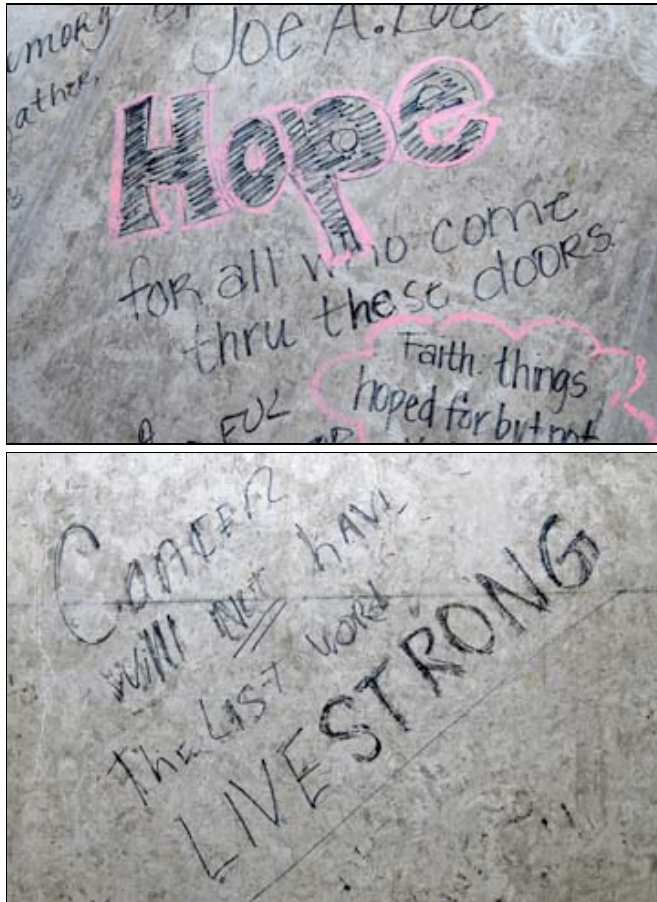 Joe A. Luce
ather,
Hope
for all who come
thru these doors.
Faith. things
hoped for but not
FUL
Cancer
will NOT have
The LAST word
LIVESTRONG